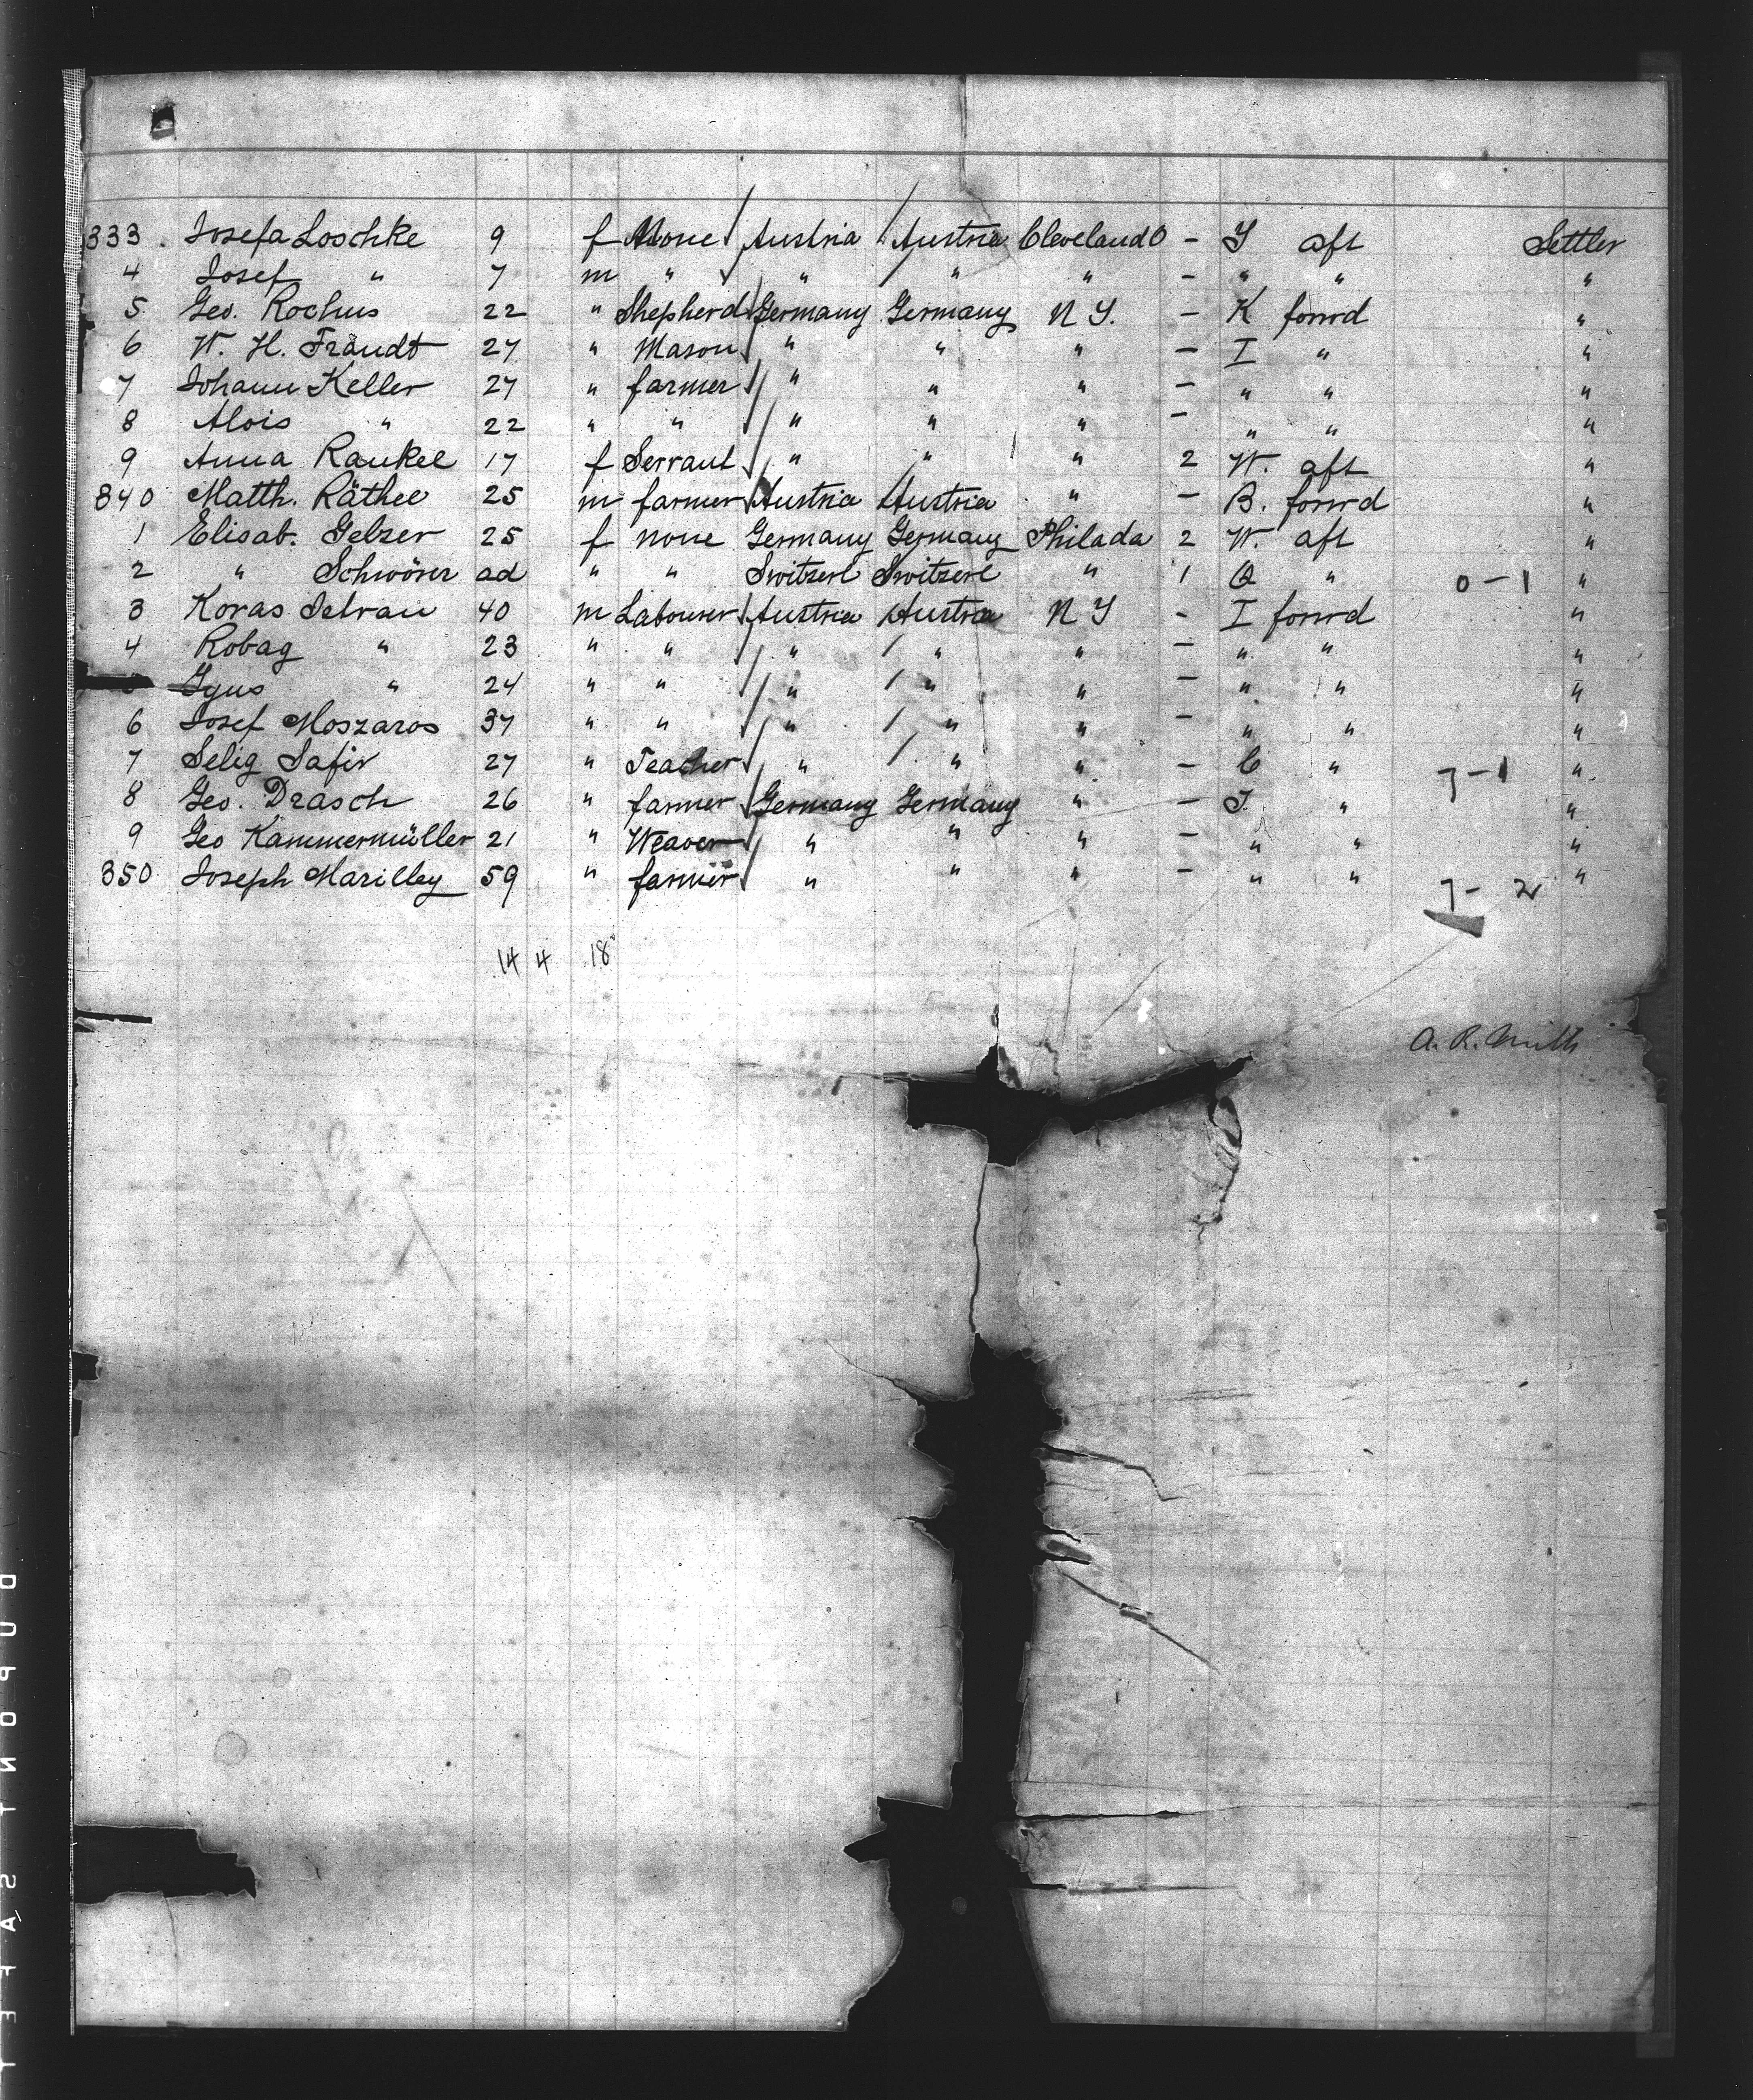 333. Josefa Loschke 9 f None Austria Austria Cleveland O - Y aft Settler
4 Josef " 7 m " " " " - " " "
5 Geo. Rochus 22 " Shepherd Germany Germany N Y. - K forwd "
6 W. H. Fraudt 27 " Mason " " " - I " "
7 Johann Keller 27 " farmer " " " - " " "
8 Alois " 22 " " " " " - " " "
9 Anna Raukel 17 f Servant " " " 2 W. aft "
840 Matth. Räthel 25 m farmer Austria Austria " - B. forwd "
1 Elisab. Gelzer 25 f none Germany Germany Philada 2 W. aft "
2 " Schwörer ad " " Switzerl Switzerl " 1 Q " 0-1 "
3 Koras Istvan 40 m Labourer Austria Austria N Y - I forwd "
4 Robag " 23 " " " " " - " " "
Gyus " 24 " " " " " - " " "
6 Josef Moszaros 37 " " " " " - " " "
7 Selig Safir 27 " Teacher " " " - C " 7-1 "
8 Geo. Drasch 26 " farmer Germany Germany " - I. " "
9 Geo Kammermüller 21 " Weaver " " " - " " "
350 Joseph Marilley 59 " farmer " " " - " " 7-2 "
14 4 18